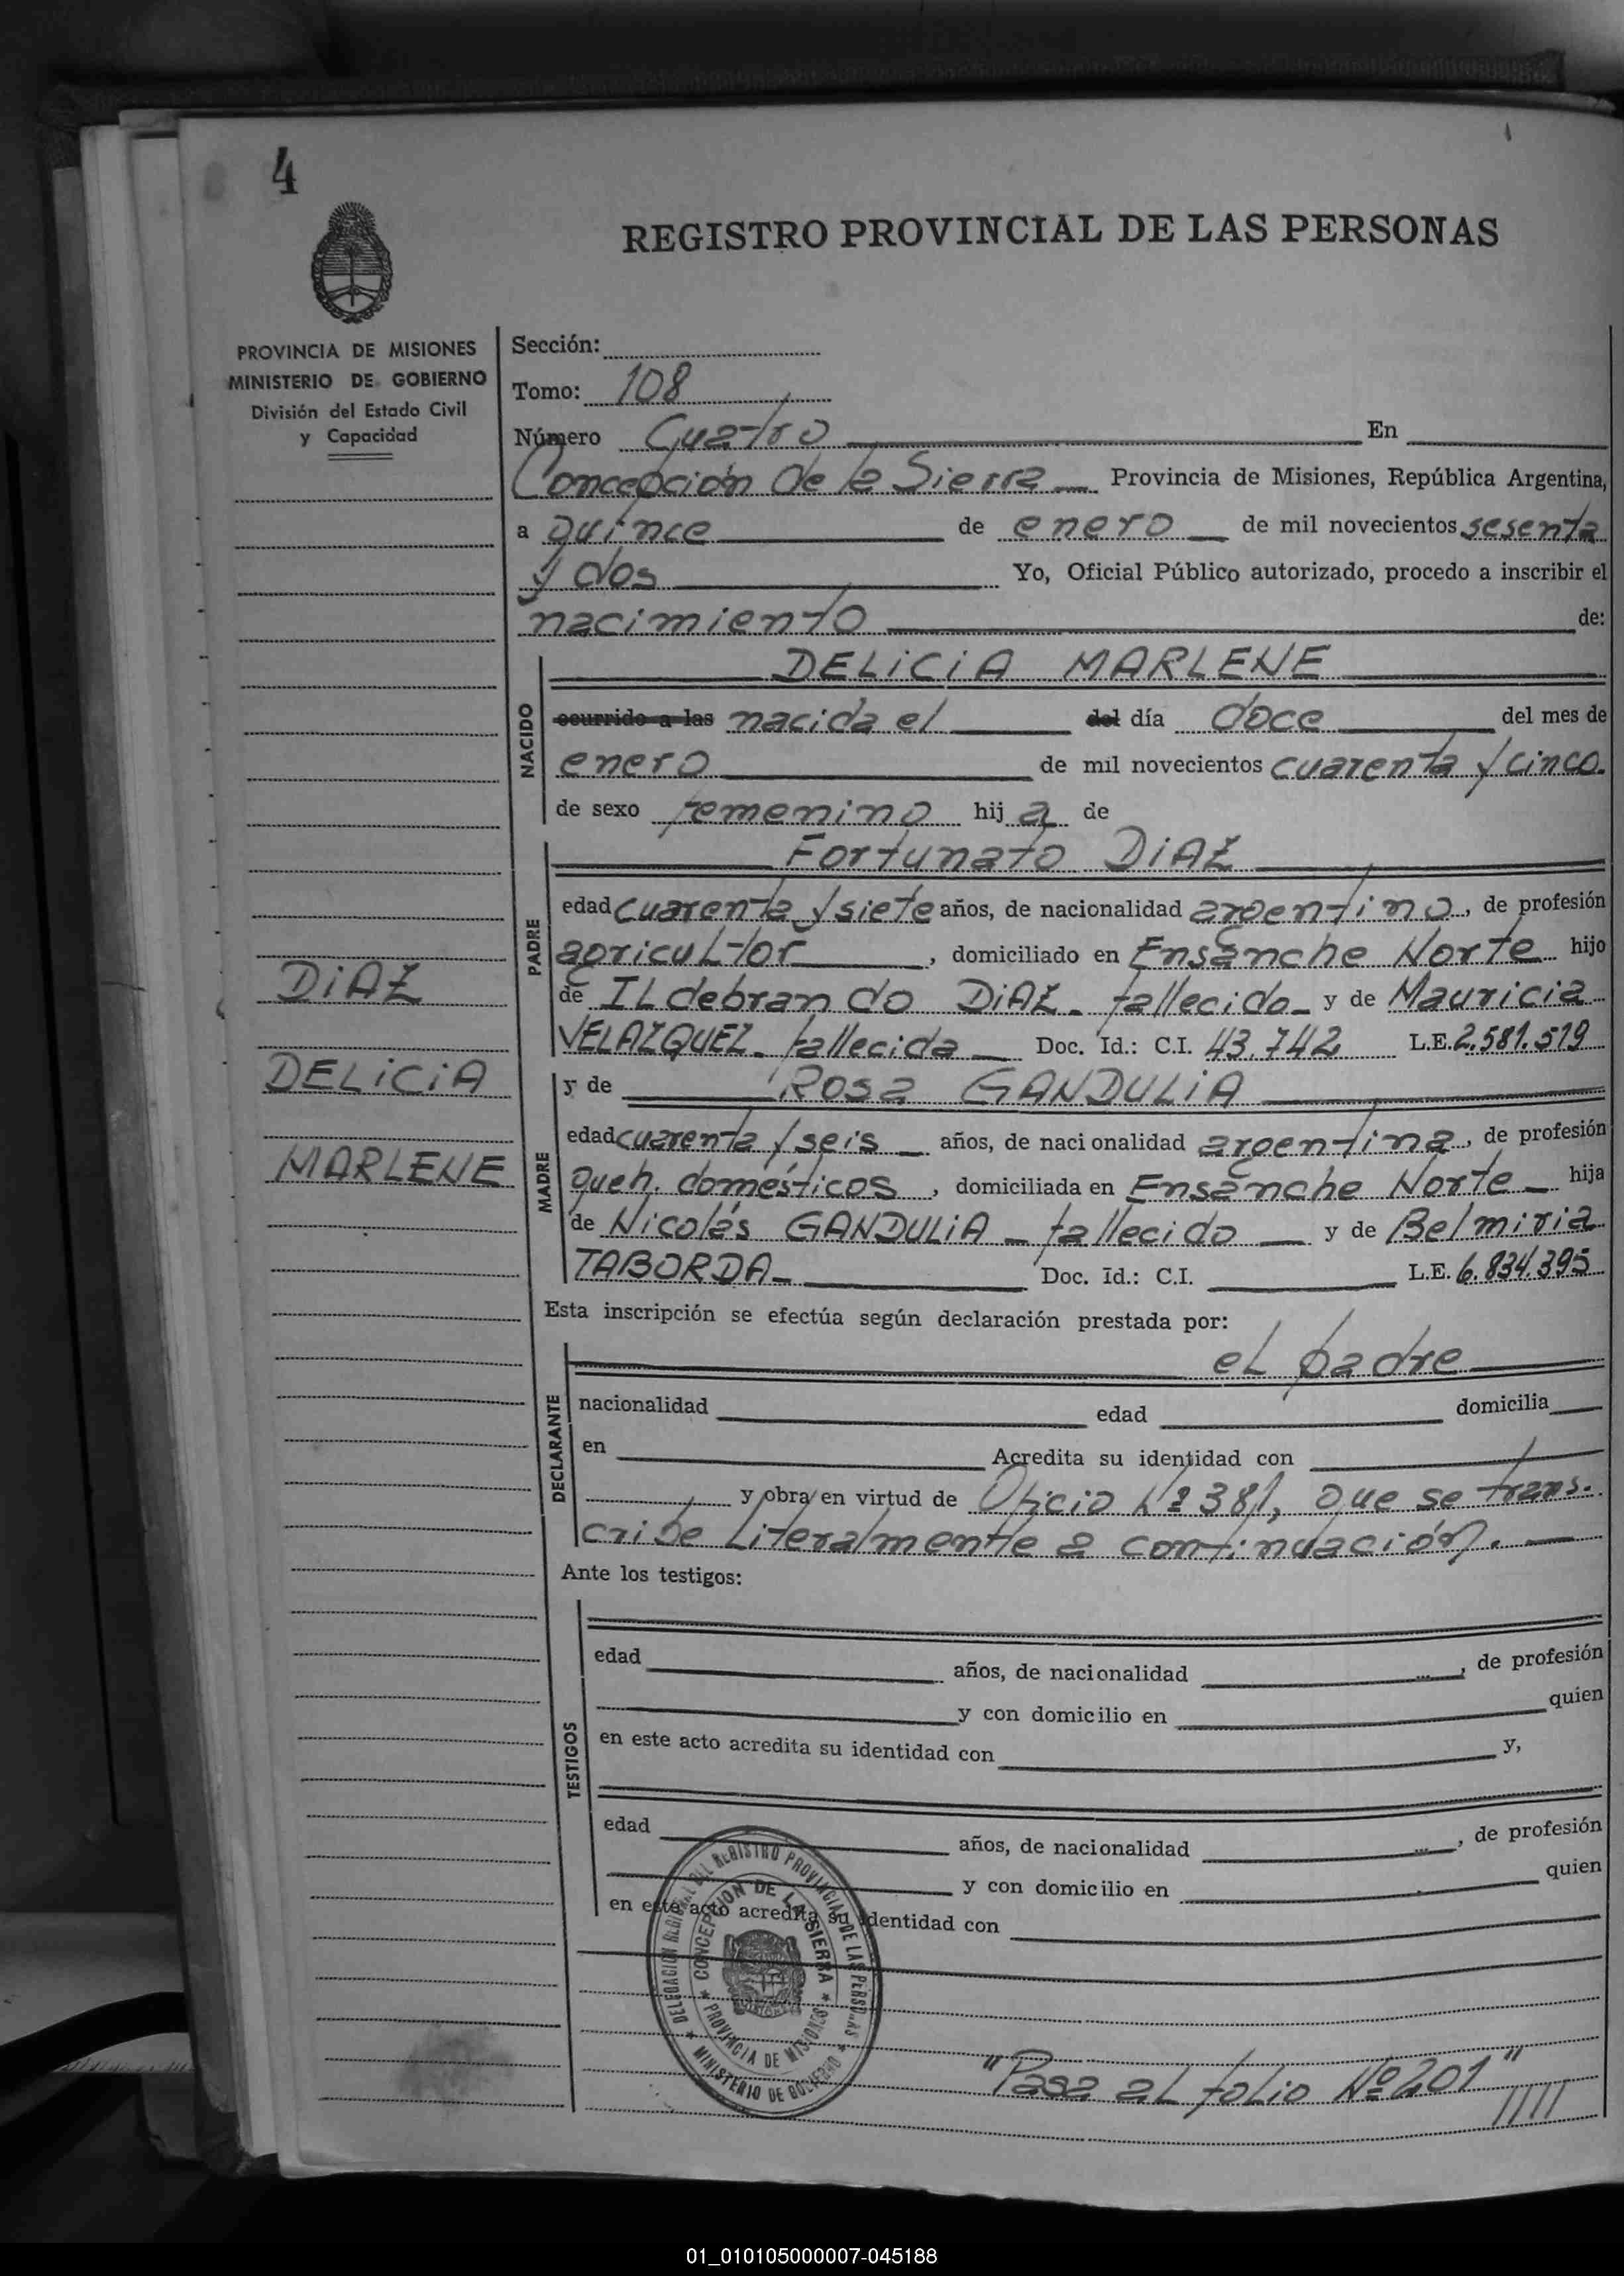 4
REGISTRO PROVINCIAL DE LAS PERSONAS
PROVINCIA DE MISIONES
MINISTERIO DE GOBIERNO
División del Estado Civil
y Capacidad
Sección:
Tomo: 108
Número Cuatro En
Concepción de la Sierra Provincia de Misiones, República Argentina,
a quince de enero de mil novecientos sesenta
y dos Yo, Oficial Público autorizado, procedo a inscribir el
nacimiento de:
NACIDO
DELICIA MARLENE
ocurrido a las nacida el del día doce del mes de
enero de mil novecientos cuarenta y cinco.
de sexo femenino hij a de
PADRE
Fortunato DIAZ
edad cuarenta y siete años, de nacionalidad argentino, de profesión
agricultor, domiciliado en Ensanche Norte hijo
de ILdebrando DIAZ - fallecido - y de Mauricia
VELAZQUEZ - fallecida Doc. Id.: C.I. 43.742 L.E. 2.581.519
MADRE
y de Rosa GANDULIA
edad cuarenta y seis años, de nacionalidad argentina, de profesión
queh. domésticos, domiciliada en Ensanche Norte hija
de Nicolás GANDULIA - fallecido y de Belmiria
TABORDA - Doc. Id.: C.I. L.E. 6.834.395
DIAZ
DELICIA
MARLENE
Esta inscripción se efectúa según declaración prestada por:
DECLARANTE
el padre
nacionalidad edad domicilia
en Acredita su identidad con
y obra en virtud de Oficio Nº 381, que se trans-
cribe Literalmente a continuación.
Ante los testigos:
TESTIGOS
edad años, de nacionalidad , de profesión
y con domicilio en quien
en este acto acredita su identidad con y,
edad años, de nacionalidad , de profesión
y con domicilio en quien
en este acto acredita su identidad con
DELEGACION REGIONAL DEL REGISTRO PROVINCIAL DE LAS PERSONAS
★ MINISTERIO DE GOBIERNO ★
CONCEPCION DE LA SIERRA
★ PROVINCIA DE MISIONES ★
"Pasa al folio Nº 201" /////
01_010105000007-045188